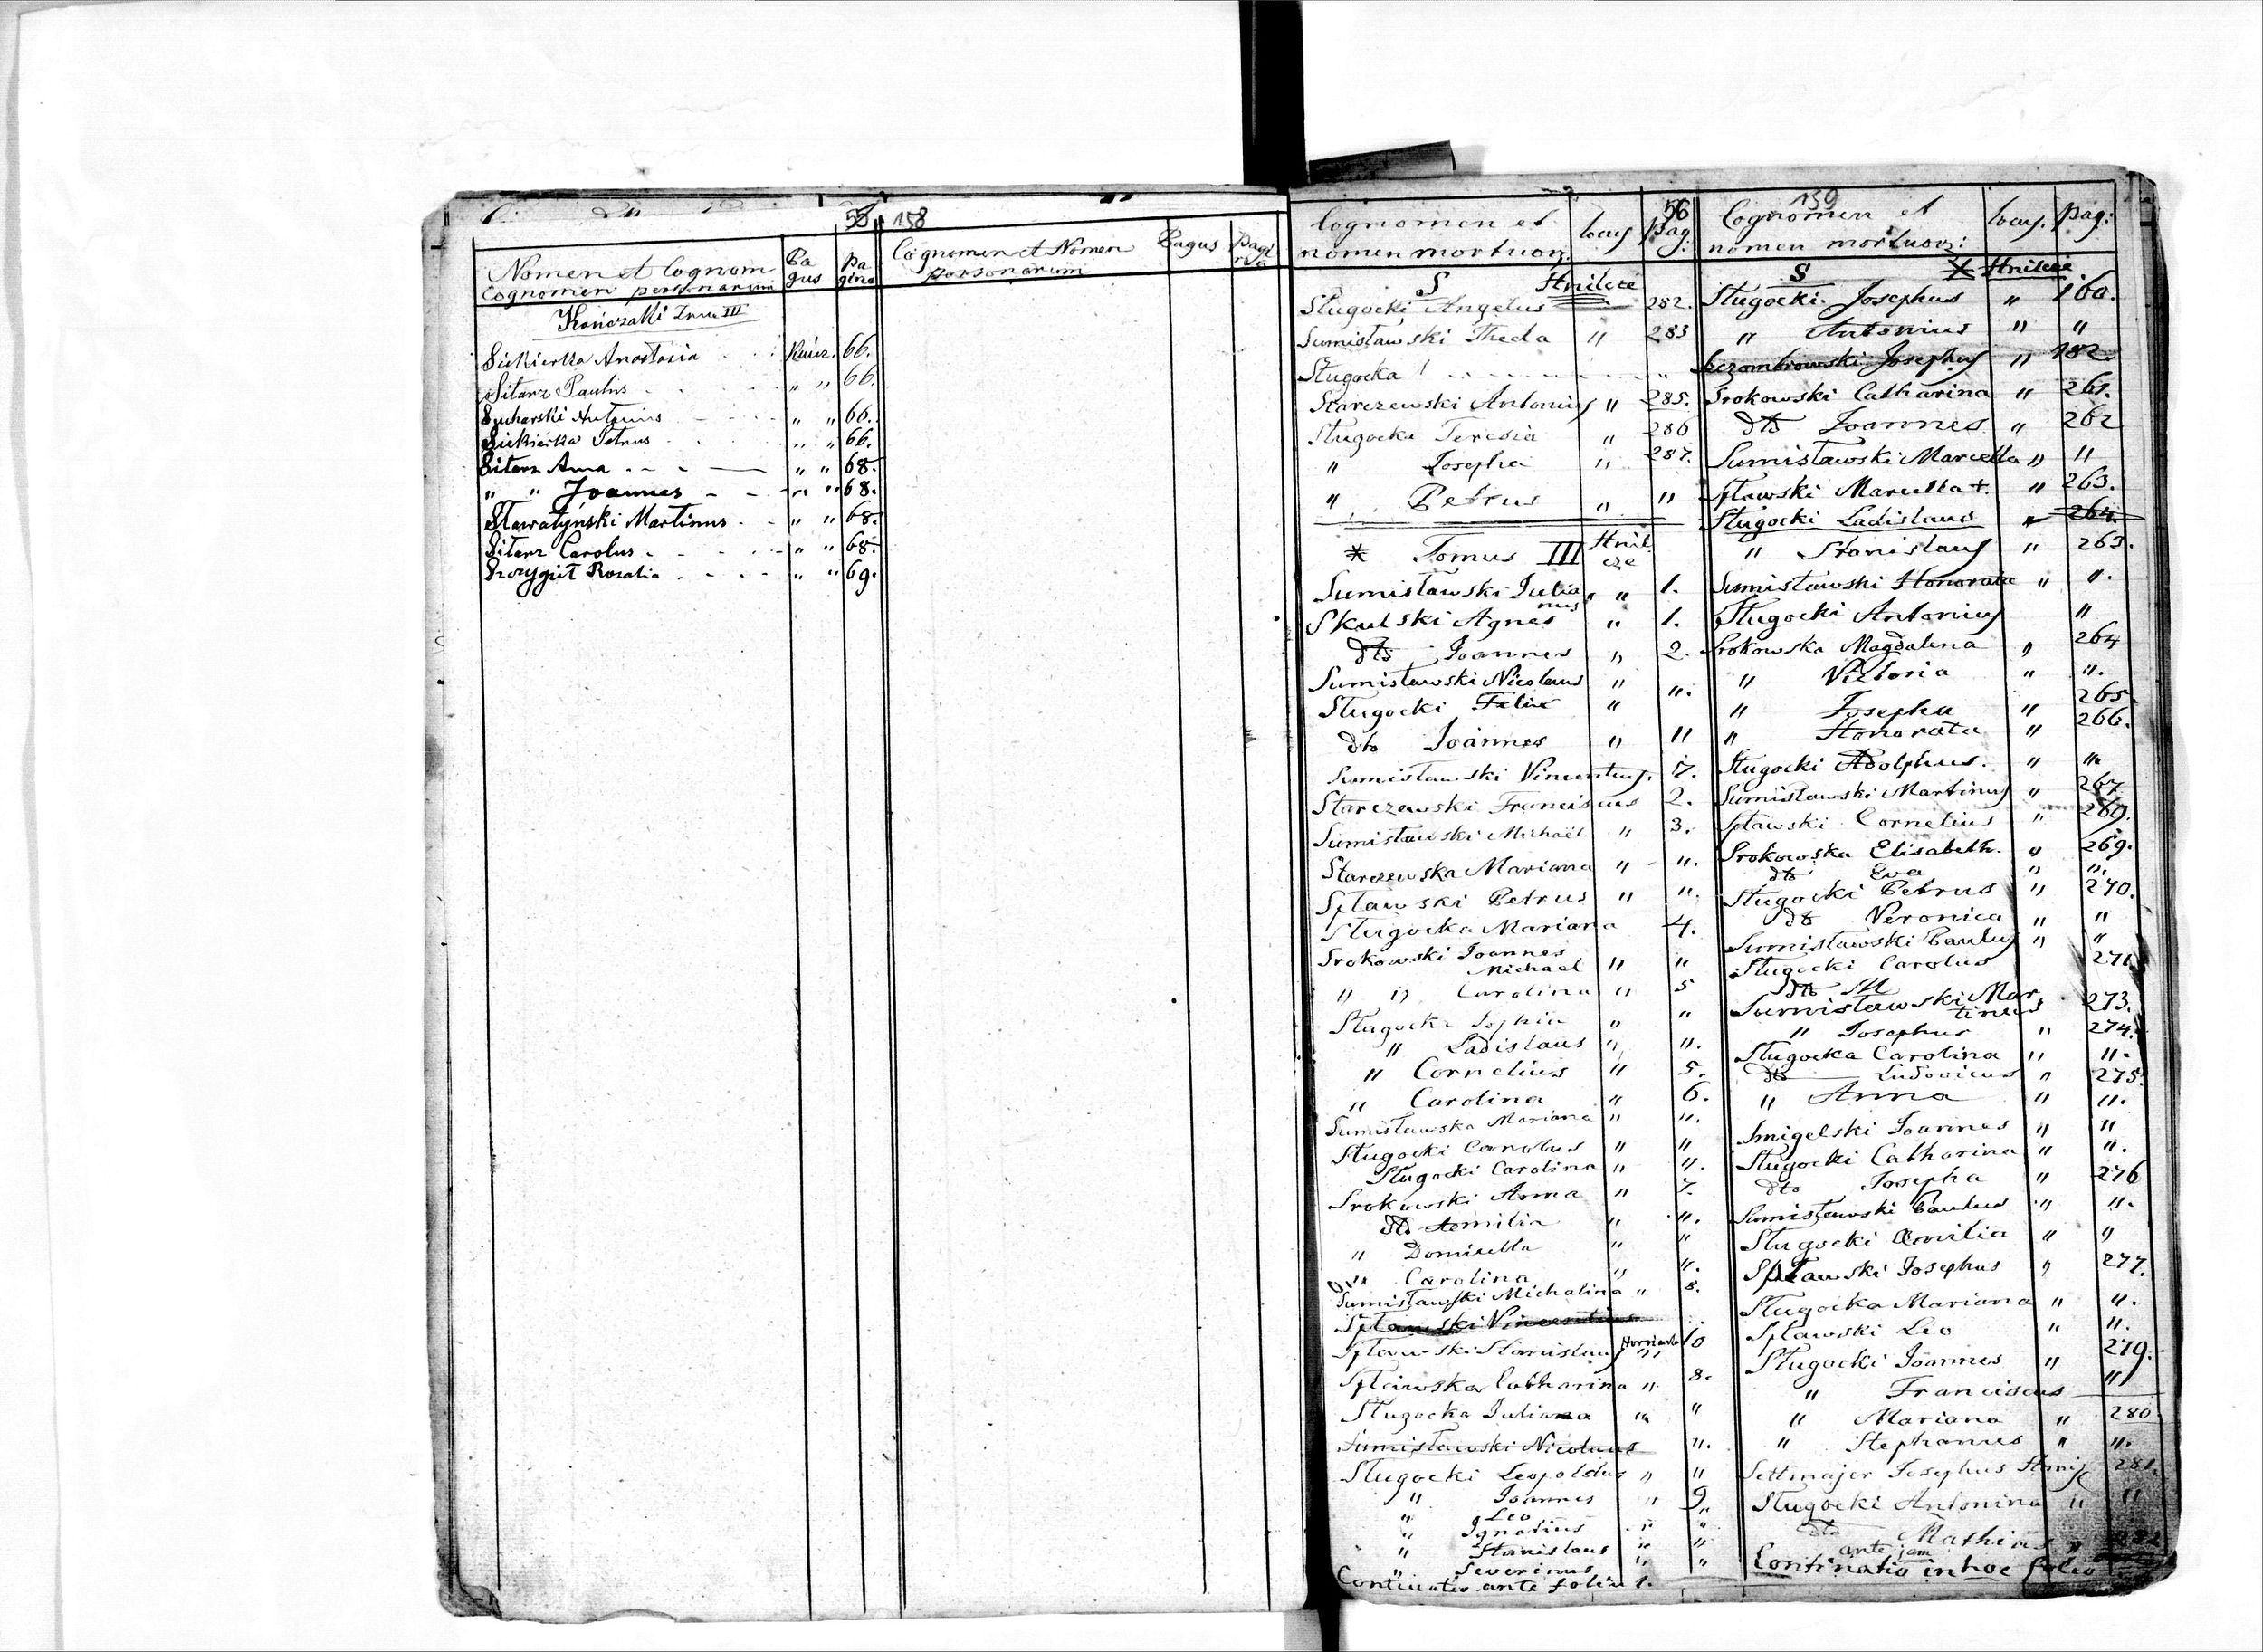 55 158
Nomen et Cognom
Cognomen personarum
Pa
gus
Pa
gina
Cognomen et Nomen
personarum
Pagus
Pagi
na
Kończaki Tom III
Siekierka Anastasia Kończ. 66.
Sitarz Paulus " " 66.
Sucharski Antonius " " 66.
Siekierka Petrus " " 66.
Sitarz Anna " " 68.
" " Joannes " " 68.
Martinus " " 68.
Sitarz Carolus " " 68.
Rozalia " " 69.
56
Cognomen et
nomen mortuor.
locus
pag:
S Hnilcze
Sługocki Angelus 282.
Sumisławski Thecla " 283
Sługocka "
Starczewski Antonius " 285.
Sługocka Teresia " 286
" Josepha " 287.
" Petrus " "
* Tomus III Hnil
cze
Sumisławski Julia
nus " 1.
Skulski Agnes " 1.
dto Joannes " 2.
Sumisławski Nicolaus " ".
Sługocki Felix "
dto Joannes " "
Sumisławski Vincentius.
Starczewski Franciscus 2.
Sumisławski Michaël " 3.
Starczewska Mariana " ".
Spławski Petrus " ".
Sługocka Mariana 4.
Srokowski Joannes
Michael " "
" " Carolina " 5
Sługocka Sophia " "
" Ladislaus " ".
" Cornelius " 5.
" Carolina " 6.
Sumisławska Mariana " ".
Sługocki Carolus " "
Sługocki Carolina " ".
Srokowski Anna " 7.
dto Aemilia " ".
" Domicella " "
" Carolina " ".
Sumisławski Michalina " 8.
Spławski Vincentius
Spławski Stanislaus 10
Spławska Catharina " 8.
Sługocka Juliana " "
Sumisławski Nicolaus ".
Sługocki Leopoldus " "
" Joannes " 9
" Leo
" Ignatius " "
" Stanislaus " "
" Severinus " "
Continuatio ante folia 1.
159
Cognomen et
nomen mortuor:
locus.
pag:
S X Hnilcze
Sługocki Josephus " 160.
" Antonius " "
Szczombrowski Josephus " 182.
Srokowski Catharina " 261.
dto Joannes " 262
Sumisławski Marcella " "
Spławski Marcella +. " 263.
Sługocki Ladislaus " 264.
" Stanislaus " 263.
Sumisławski Honorata " ".
Sługocki Antonius "
Srokowska Magdalena " 264
" Victoria " ".
" Josepha " 265
" Honorata " 266.
Sługocki Adolphus. " "
Sumisławski Martinus " 267
Spławski Cornelius " 269.
Srokowska Elisabeth. " 269.
dto Eva " ".
Sługocki Petrus " 270.
dto Veronica " "
Sumisławski Paulus " "
Sługocki Carolus 271.
dto M
Sumisławski Mar
tinus 273.
" Josephus " 274.
Sługocka Carolina " ".
dto Ludovicus " 275.
" Anna " ".
Smigelski Joannes " "
Sługocki Catharina " ".
dto Josepha " 276
Sumisławski Paulus " ".
Sługocki Emilia " "
Spławski Josephus " 277.
Sługocka Mariana " ".
Spławski Leo " ".
Sługocki Joannes " 279.
" Franciscus "
" Mariana " 280.
" Stephanus " ".
Settmajer Josephus 281.
Sługocki Antonina " "
dto Mathias " 282
ante jam
Continatio in hoc folio